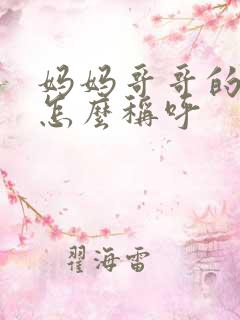 妈妈哥哥的
怎麼稱呼
翟海雷